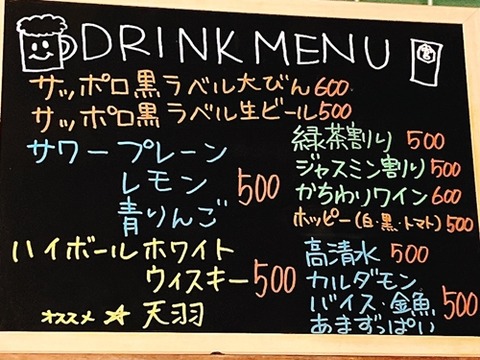 DRINK MENU
サッポロ黒ラベル大びん 600
サッポロ黒ラベル生ビール 500
サワープレーン
レモン 500
青りんご
ハイボールホワイト
ウィスキー 500
オススメ ☆ 天羽
緑茶割り 500
ジャスミン割り 500
かちわりワイン 600
ホッピー(白・黒・トマト) 500
高清水 500
カルダモン
バイス・金魚 500
あまずっぱい